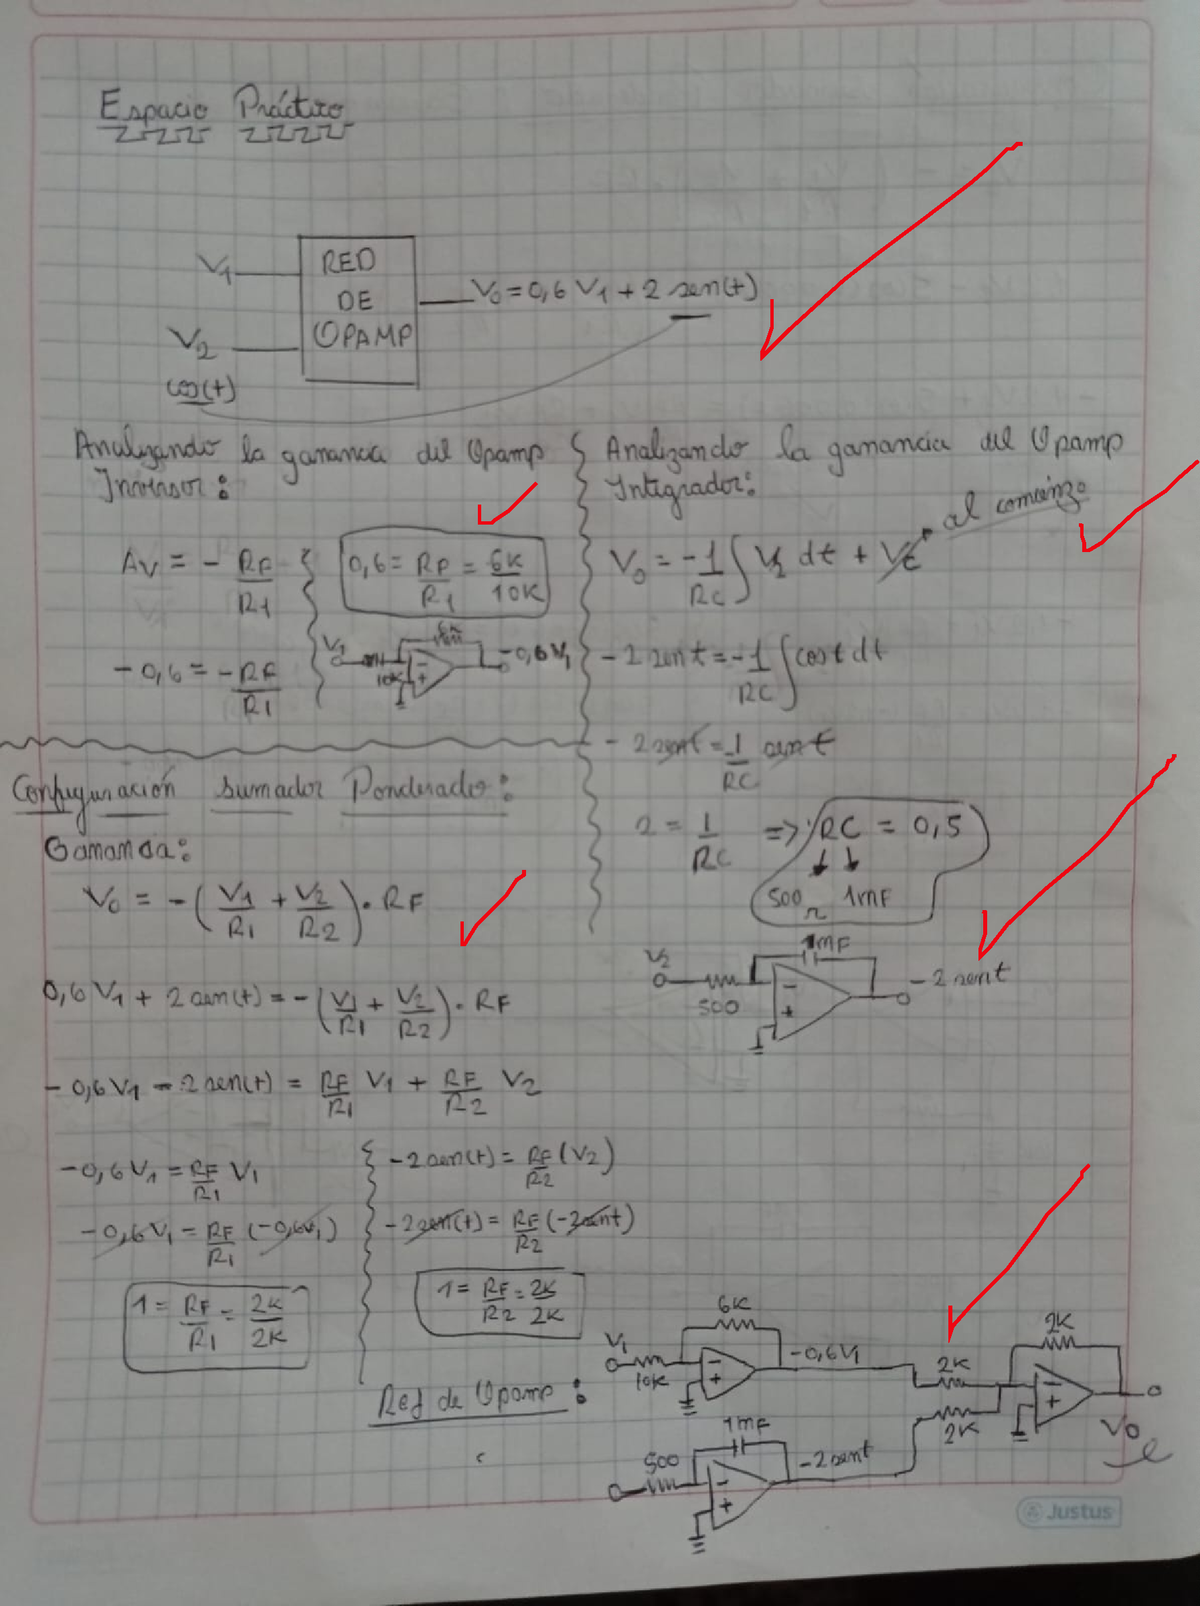 Espacio Práctico
V1
RED
DE
OPAMP
V0 = 0,6 V1 + 2 sen(t)
V2
cos(t)
Analizando la ganancia del Opamp
Inversor:
AV = - RF/R1
0,6 = RF/R1 = 6K/10K
-0,6 = - RF/R1
V1
10K
-0,6 V1
Analizando la ganancia del Opamp
Integrador:
al comienzo
V0 = -1/RC ∫ V2 dt + Vc
-2 sent = -1/RC ∫ cost dt
-2 sent = -1/RC sent
2 = 1/RC => RC = 0,5
500Ω 1mF
V2
1mF
500
-2 sent
Configuración sumador Ponderado:
Ganancia:
V0 = - (V1/R1 + V2/R2) · RF
0,6 V1 + 2 sen(t) = - (V1/R1 + V2/R2) · RF
-0,6 V1 - 2 sen(t) = RF/R1 V1 + RF/R2 V2
-0,6 V1 = RF/R1 V1
-0,6 V1 = RF/R1 (-0,6V1)
1 = RF/R1 = 2K/2K
-2 sen(t) = RF/R2 (V2)
-2 sen(t) = RF/R2 (-2 sent)
1 = RF/R2 = 2K/2K
Red de Opamp:
V1
10K
6K
-0,6V1
2K
2K
2K
V0
500
1mF
-2 sent
Justus